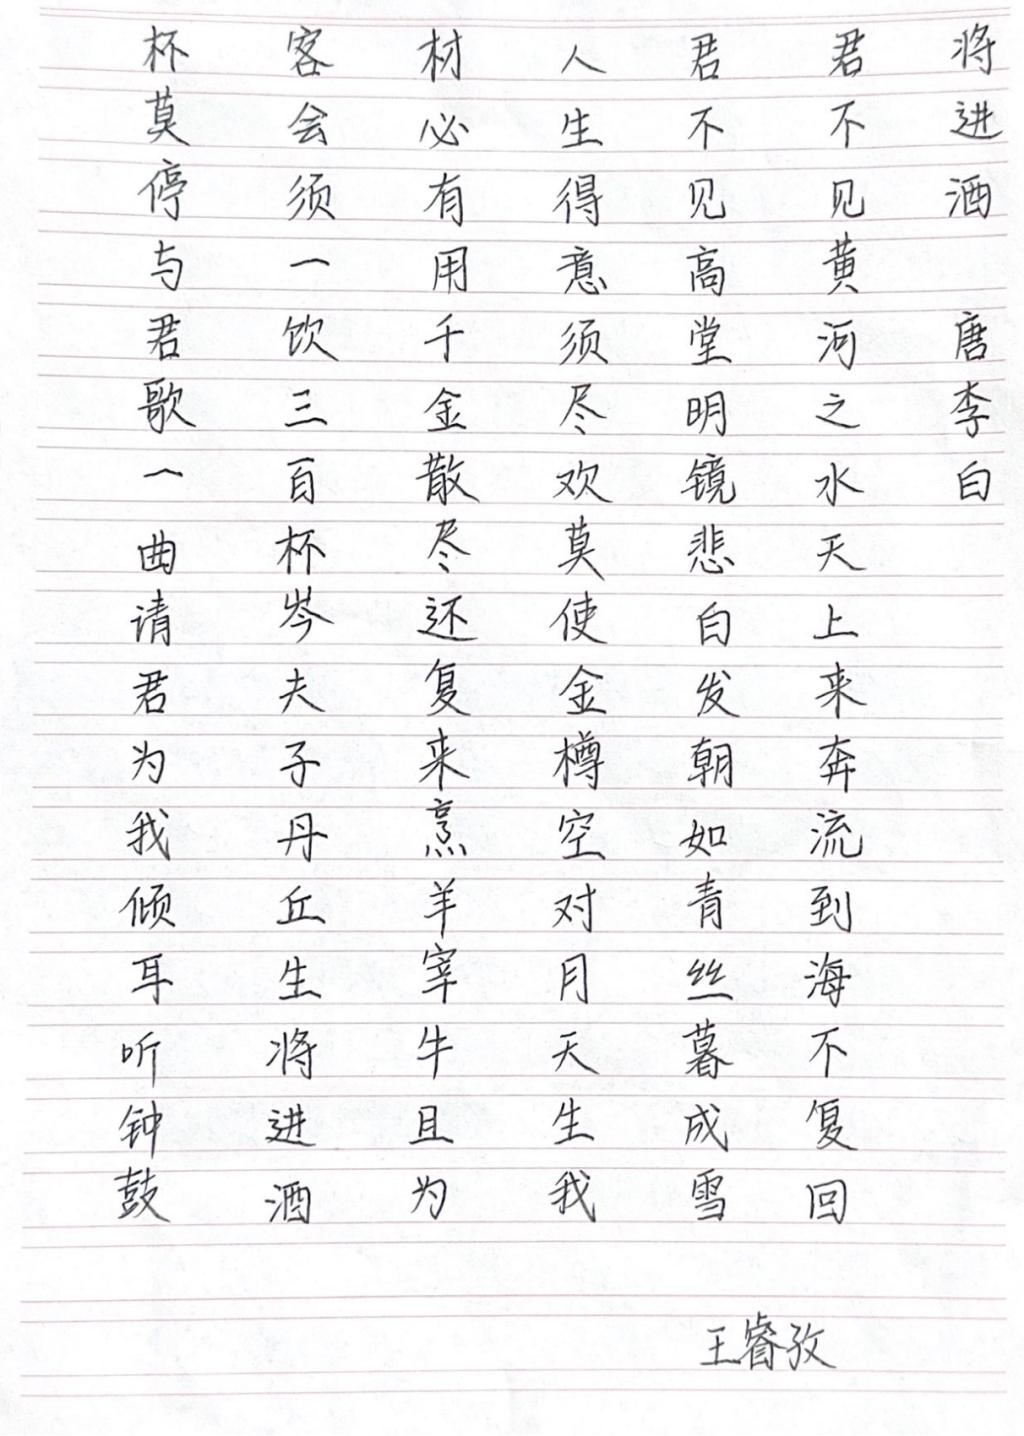 将进酒 唐李白
君不见黄河之水天上来奔流到海不复回
君不见高堂明镜悲白发朝如青丝暮成雪
人生得意须尽欢莫使金樽空对月天生我
材必有用千金散尽还复来烹羊宰牛且为
客会须一饮三百杯岑夫子丹丘生将进酒
杯莫停与君歌一曲请君为我倾耳听钟鼓
王睿孜